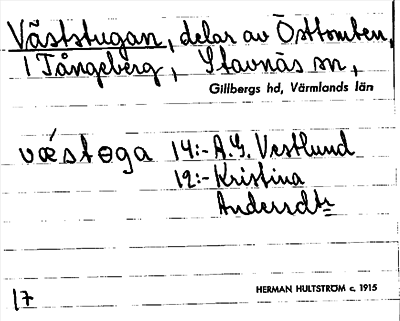 Väststugan, delar av Östtomten,
1 Tångeberg, Stavnäs sn,
Gillbergs hd, Värmlands län
vǽstɵga 14:- A.G. Vestlund
12:- Kristina
Andersdtr
17
HERMAN HULTSTRÖM c. 1915